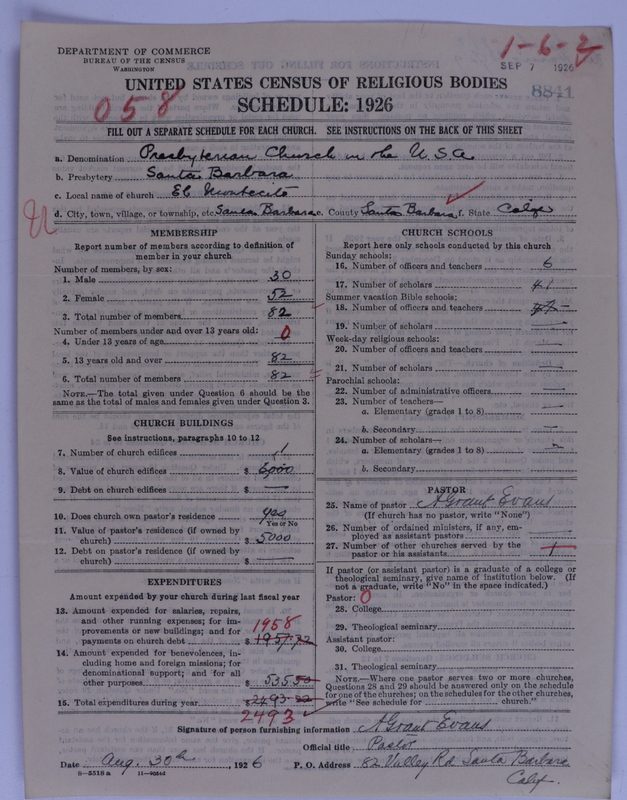 DEPARTMENT OF COMMERCE
BUREAU OF THE CENSUS
WASHINGTON
1-6-2
SEP 7 1926
8841
UNITED STATES CENSUS OF RELIGIOUS BODIES
058
SCHEDULE: 1926
FILL OUT A SEPARATE SCHEDULE FOR EACH CHURCH. SEE INSTRUCTIONS ON THE BACK OF THIS SHEET
a. Denomination Presbyterian Church in the U.S.A.
b. Presbytery Santa Barbara
c. Local name of church El Montecito
d. City, town, village, or township, etc. Santa Barbara e. County Santa Barbara f. State Calif
MEMBERSHIP
Report number of members according to definition of member in your church
Number of members, by sex:
1. Male 30
2. Female 52
3. Total number of members 82
Number of members under and over 13 years old:
4. Under 13 years of age 0
5. 13 years old and over 82
6. Total number of members 82
NOTE.—The total given under Question 6 should be the same as the total of males and females given under Question 3.
CHURCH BUILDINGS
See instructions, paragraphs 10 to 12
7. Number of church edifices 1
8. Value of church edifices $ 6,000
9. Debt on church edifices $ —
10. Does church own pastor's residence yes
Yes or No
11. Value of pastor's residence (if owned by church) $ 5000
12. Debt on pastor's residence (if owned by church) $ —
EXPENDITURES
Amount expended by your church during last fiscal year
13. Amount expended for salaries, repairs, and other running expenses; for improvements or new buildings; and for payments on church debt $ 1957.72
1958
14. Amount expended for benevolences, including home and foreign missions; for denominational support; and for all other purposes $ 535.50
15. Total expenditures during year $ 2493.22
2493
CHURCH SCHOOLS
Report here only schools conducted by this church
Sunday schools:
16. Number of officers and teachers 6
17. Number of scholars 41
Summer vacation Bible schools:
18. Number of officers and teachers
19. Number of scholars —
Week-day religious schools:
20. Number of officers and teachers —
21. Number of scholars —
Parochial schools:
22. Number of administrative officers —
23. Number of teachers—
a. Elementary (grades 1 to 8) —
b. Secondary —
24. Number of scholars—
a. Elementary (grades 1 to 8)
b. Secondary —
PASTOR
25. Name of pastor A Grant Evans
(If church has no pastor, write "None")
26. Number of ordained ministers, if any, employed as assistant pastors —
27. Number of other churches served by the pastor or his assistants
If pastor (or assistant pastor) is a graduate of a college or theological seminary, give name of institution below. (If not a graduate, write "No" in the space indicated.)
Pastor: 0
28. College
29. Theological seminary
Assistant pastor:
30. College
31. Theological seminary
NOTE.—Where one pastor serves two or more churches, Questions 28 and 29 should be answered only on the schedule for one of the churches; on the schedules for the other churches, write "See schedule for church."
Signature of person furnishing information A Grant Evans
Official title Pastor
Date Aug. 30th, 1926 P. O. Address 82 Valley Rd Santa Barbara
Calif.
8—5518 a 11—9054d